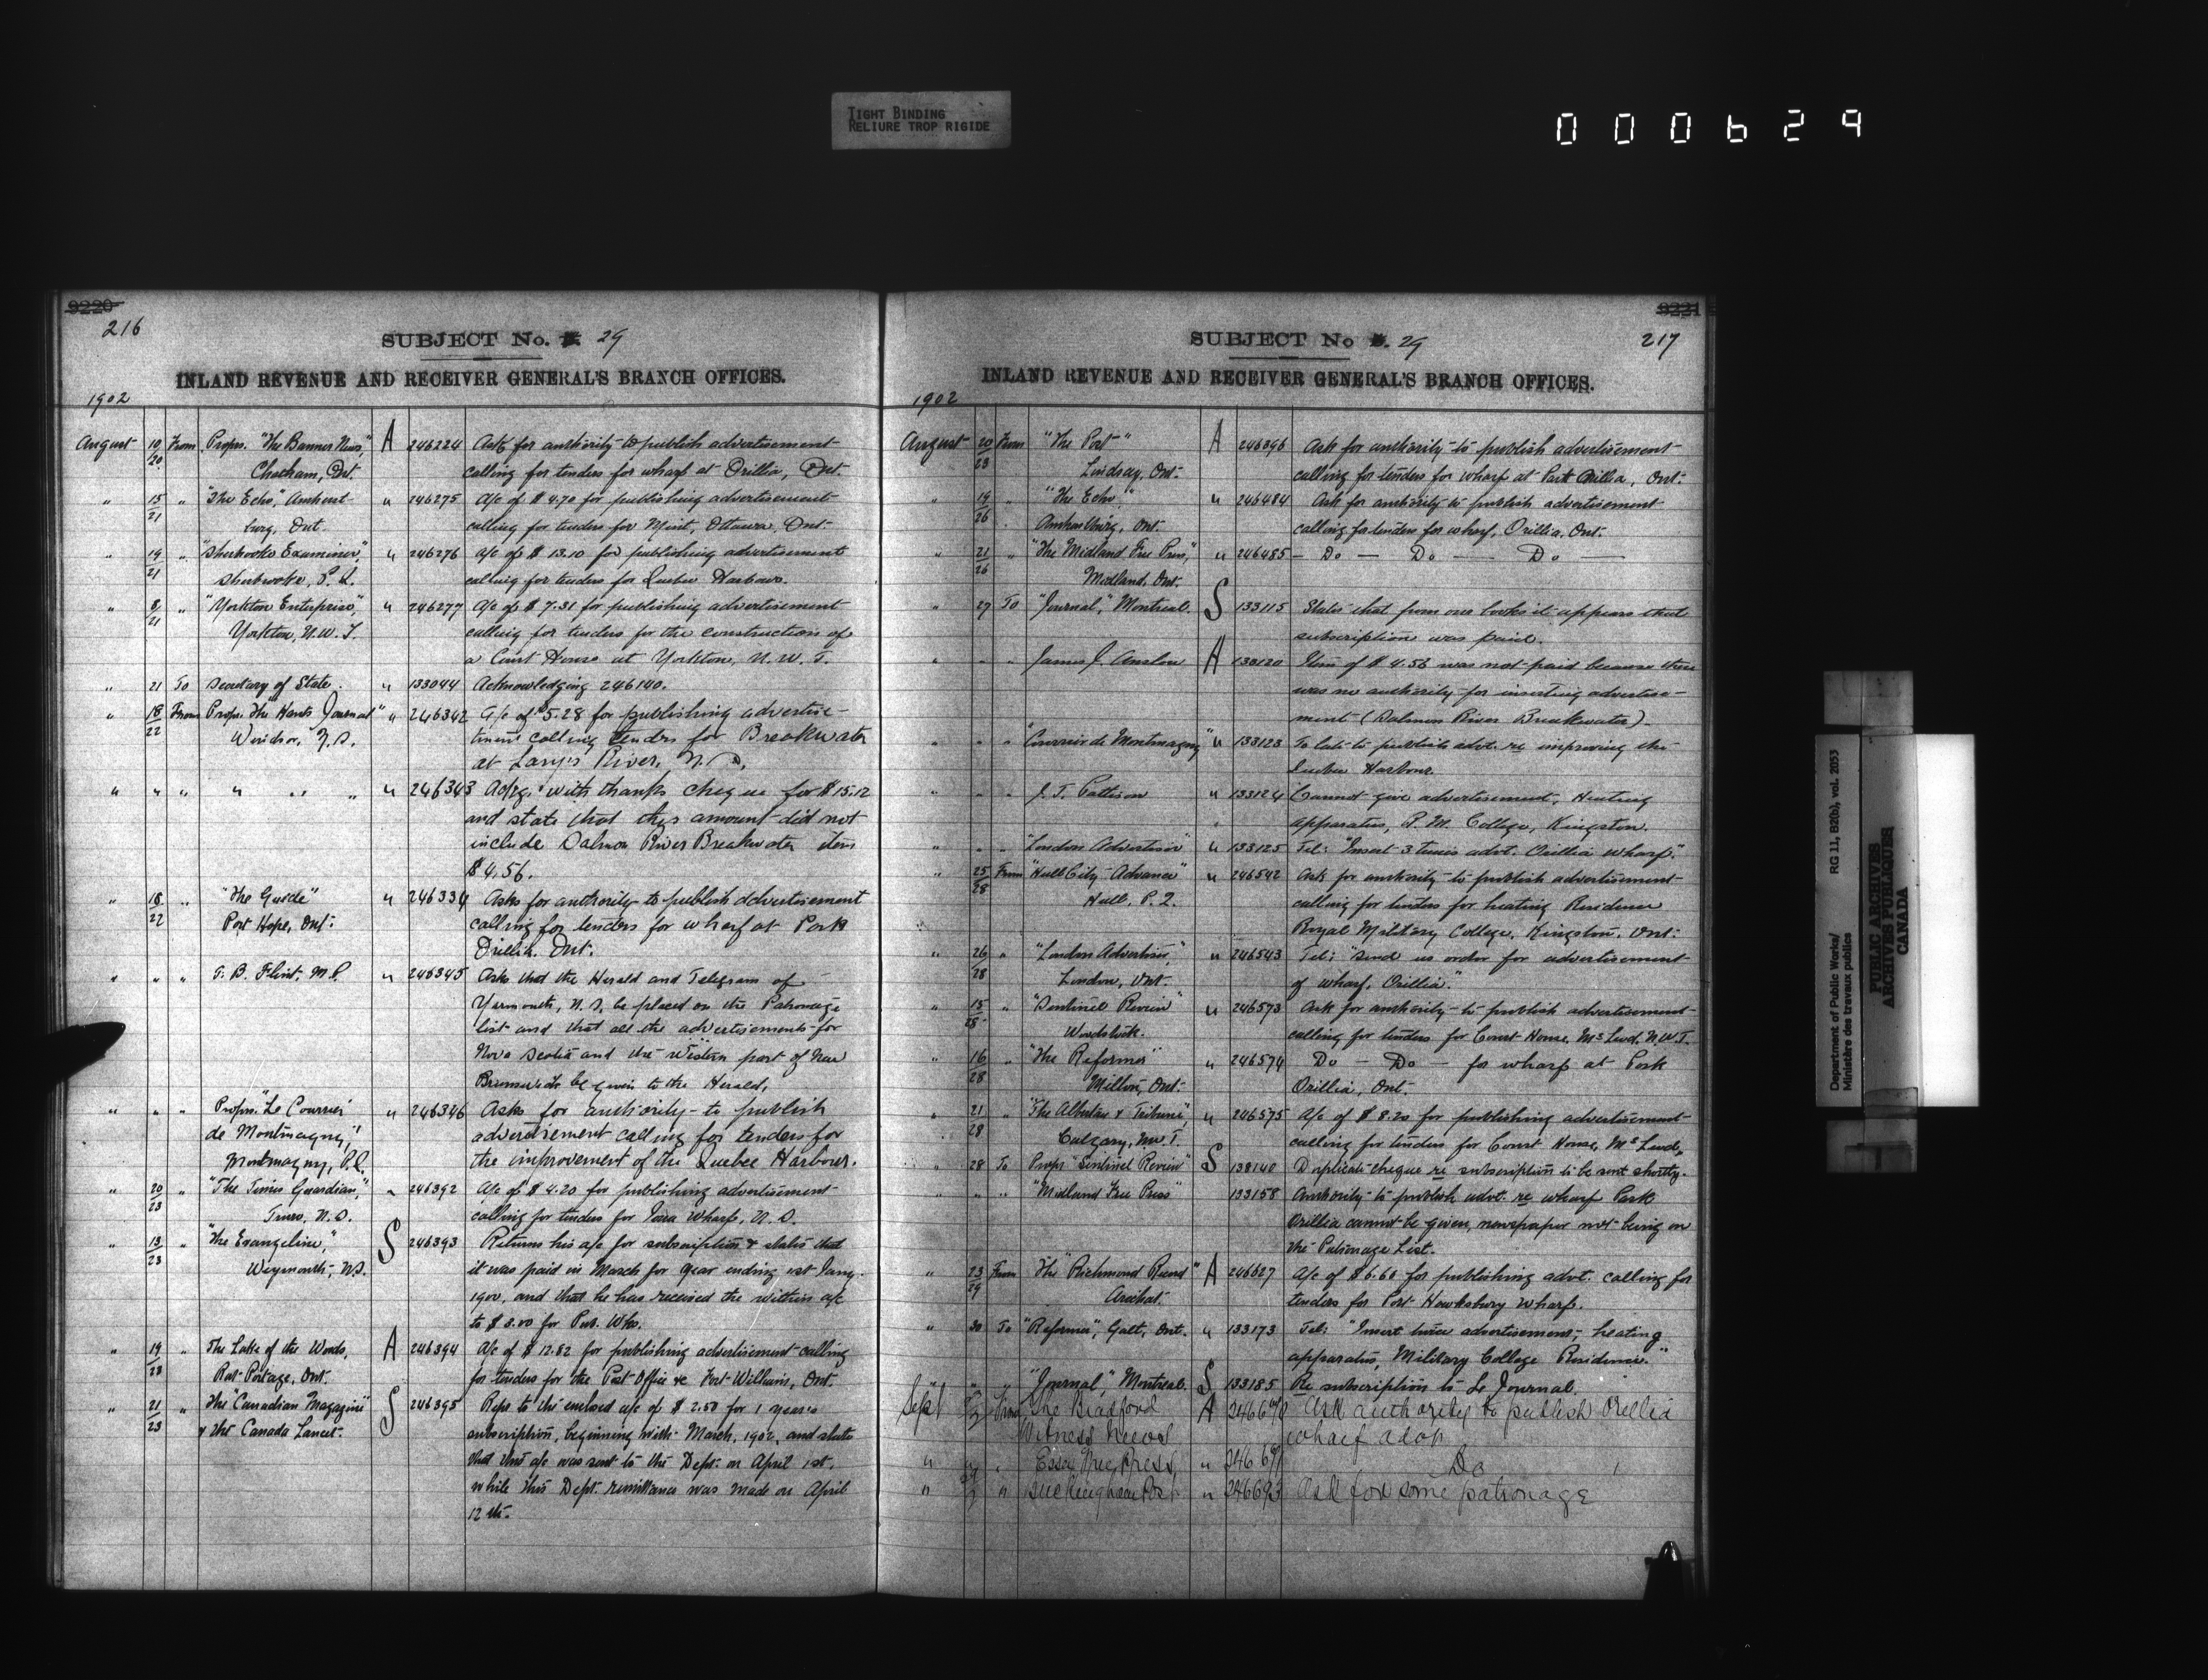 TIGHT BINDING
RELIURE TROP RIGIDE
000629
9220
216
SUBJECT No. 29
INLAND REVENUE AND RECEIVER GENERAL'S BRANCH OFFICES.
1902
August 19/20 From Propr. "The Banner News", A 246224 Ask for authority to publish advertisement
Chatham, Ont. calling for tenders for wharf at Orillia, Ont.
" 15/21 " "The Echo", Amherst- " 246275 A/c of $4.70 for publishing advertisement
burg, Ont calling for tenders for Mint, Ottawa, Ont.
" 19/21 " "Sherbrooke Examiner", " 246276 a/c of $13.10 for publishing advertisement
Sherbrooke, P.Q. calling for tenders for Quebec Harbour.
" 8/21 " "Yorkton Enterprise", " 246277 A/c of $7.31 for publishing advertisement
Yorkton, N.W.T. calling for tenders for the construction of
a Court House at Yorkton, N.W.T.
" 21 To Secretary of State. " 133044 Acknowledging 246140.
" 18/22 From Propr. "The Hants Journal" " 246342 A/c of $5.28 for publishing advertise-
Windsor, N.S. ment calling tenders for Breakwater
at Larys River, N.S.
" " " " " " " 246343 Ackg. with thanks cheque for $15.12
and state that this amount did not
include Salmon River Breakwater item
$4.56.
" 18/22 " "The Guide" " 246334 Asks for authority to publish advertisement
Port Hope, Ont. calling for tenders for wharf at Park
Orillia, Ont.
" " " T. B. Flint, M.P. " 246345 Asks that the Herald and Telegram of
Yarmouth, N.S, be placed on the Patronage
list and that all the advertisements for
Nova Scotia and the western part of New
Brunswick be given to the Herald.
" " " Propr. "Le Courrier " 246346 Asks for authority to publish
de Montmagny," advertisement calling for tenders for
Montmagny, P.Q. the improvement of the Quebec Harbour.
" 20/23 " "The Times Guardian", " 246392 A/c of $4.20 for publishing advertisement
Truro, N.S. calling for tenders for Iona Wharf, N.S.
" 13/23 " "The Evangeline," S 246393 Returns his a/c for subscription & states that
Weymouth, N.S. it was paid in March for year ending 1st Jany.
1900, and that he has received the within a/c
to $3.00 for Pub. Wks.
" 19/23 " The Lake of the Woods, A 246394 A/c of $12.82 for publishing advertisement calling
Rat-Portage, Ont. for tenders for the Post Office &c Fort-William, Ont.
" 21/23 " The "Canadian Magazine" S 246395 Refs to the enclosed a/c of $2.50 for 1 year's
& the Canada Lancet. subscription, beginning with March, 1902, and states
that this a/c was sent to the Dept. on April 1st,
while this Dept. remittance was made on April
12th.
9221
217
SUBJECT No. 29
INLAND REVENUE AND RECEIVER GENERAL'S BRANCH OFFICES.
1902
August 20/23 From "The Post" A 246396 Ask for authority to publish advertisement
Lindsay, Ont. calling for tenders for wharf at Park Orillia, Ont.
" 19/26 " "The Echo" " 246484 Ask for authority to publish advertisement
Amherstburg, Ont. calling for tenders for wharf, Orillia, Ont.
" 21/26 " "The Midland Free Press", " 246485 — Do — Do — Do —
Midland, Ont.
" 27 To "Journal", Montreal. S 133115 States that from our books it appears that
subscription was paid.
" " " James J. Anslow A 133120 Item of $4.56 was not paid because there
was no authority for inserting advertise-
ment (Salmon River Breakwater).
" " " "Courrier de Montmagny" " 133123 To late to publish advt. re improving the
Quebec Harbour.
" " " J. T. Pattison " 133124 Cannot give advertisement, Heating
apparatus, R. M. College, Kingston.
" " " "London Advertiser" " 133125 Tel: "Insert 3 times advt. Orillia wharf."
" 25/28 From "Hull City Advance" " 246542 Ask for authority to publish advertisement
Hull, P.Q. calling for tenders for heating Residence
Royal Military College, Kingston, Ont.
" 26/28 " "London Advertiser", " 246543 Tel: "Send us order for advertisement
London, Ont. of wharf, Orillia."
" 15/28 " "Sentinel Review" " 246573 Ask for authority to publish advertisement
Woodstock. calling for tenders for Court House, McLeod, N.W.T.
" 16/28 " "The Reformer" " 246574 Do — Do — for wharf at Park
Milton, Ont. Orillia, Ont.
" 21/28 " "The Albertan & Tribune", " 246575 A/c of $8.20 for publishing advertisement
Calgary, N.W.T. calling for tenders for Court House, McLeod.
" 28 To Propr "Sentinel Review" S 133140 Duplicate cheque re subscription to be sent shortly.
" " " "Midland Free Press" 133158 Authority to publish advt. re wharf Park
Orillia cannot be given, newspaper not being on
the Patronage List.
" 23/29 From The "Richmond Record" A 246627 A/c of $6.60 for publishing advt. calling for
Arichat. tenders for Port Hawksbury wharf.
" 30 To "Reformer", Galt, Ont. " 133173 Tel: "Insert twice advertisement, heating
apparatus, Military College Residence."
" " "Journal", Montreal. S 133185 Re subscription to Le Journal.
Sept From The Bradford A 246640 Ask authority to publish Orillia
Witness News wharf
" " " Essex Free Press, " Do
" " Buckingham Post " 246693 Ask for some patronage
Department of Public Works/ RG 11, B2(b), vol. 2053
Ministère des travaux publics
PUBLIC ARCHIVES
ARCHIVES PUBLIQUES
CANADA